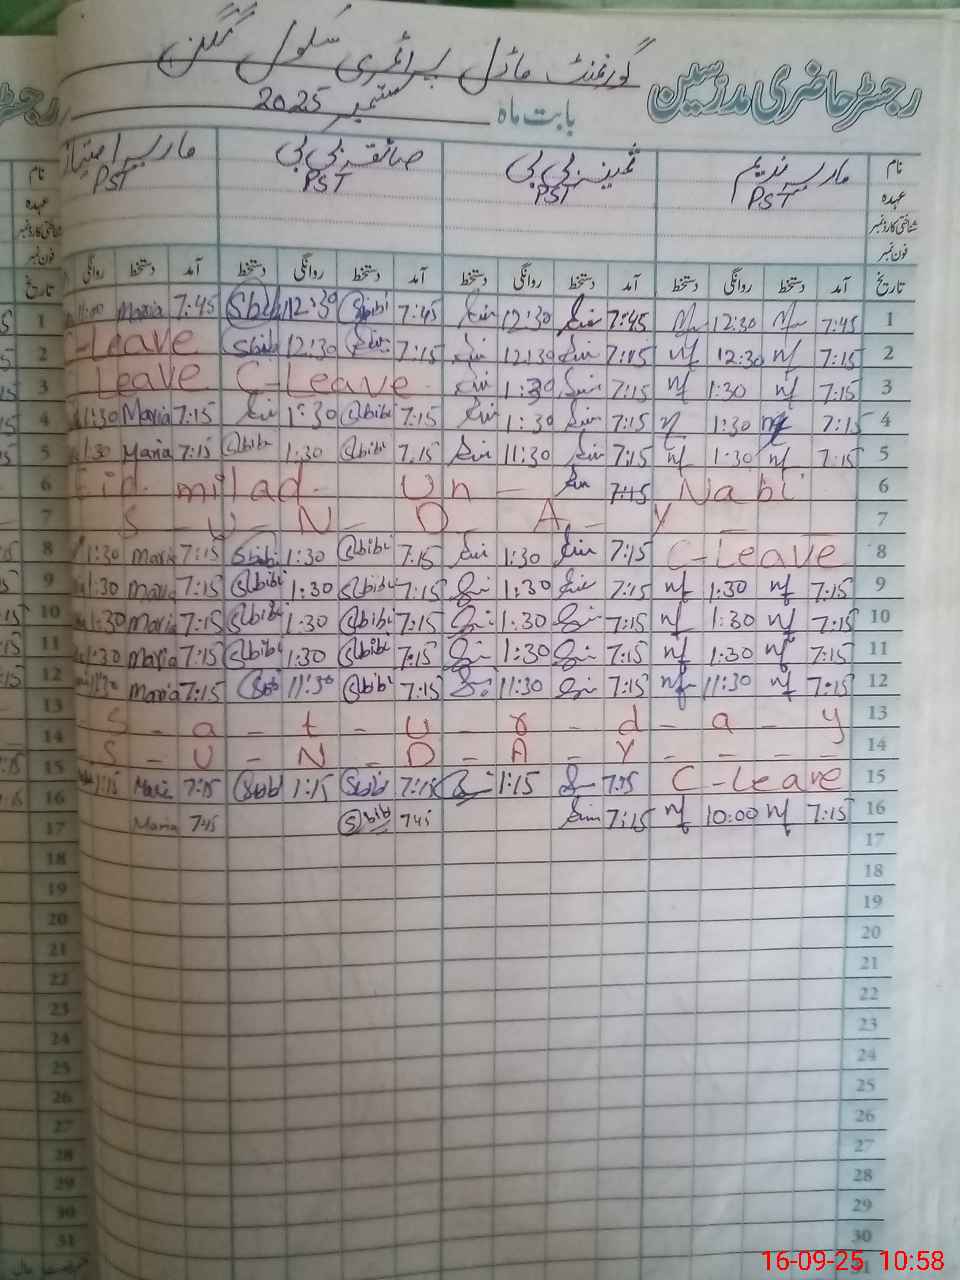 گورنمنٹ ماڈل پرائمری سکول
رجسٹر حاضری مدرسین
بابت ماہ ستمبر 2025
نام ماریہ ندیم ثمینہ بی بی صائقہ بی بی ماریہ امتیاز
عہدہ PST PST PST PST
شناختی کارڈ نمبر
فون نمبر
تاریخ آمد دستخط روانگی دستخط آمد دستخط روانگی دستخط آمد دستخط روانگی دستخط آمد دستخط روانگی
1 7:45 12:30 7:45 12:30 7:45 Sbibi 12:30 7:45 Maria
2 7:15 nf 12:30 nf 12:30 7:15 12:30 Sbibi C-Leave
3 7:15 nf 1:30 nf 7:15 1:30 C-Leave Leave
4 7:15 1:30 7:15 1:30 7:15 Sbibi 1:30 7:15 Maria 1:30
5 7:15 nf 1:30 nf 7:15 11:30 7:15 Sbibi 1:30 Sbibi 7:15 Maria 1:30
6 Eid milad Un - 7:45 Nabi
7 S - U - N - D - A - Y
8 C-Leave 7:15 1:30 7:15 Sbibi 1:30 Sbibi 7:15 Maria 1:30
9 7:15 nf 1:30 nf 7:15 1:30 7:15 Sbibi 1:30 Sbibi 7:15 Maria 1:30
10 7:15 nf 1:30 nf 7:15 1:30 7:15 Sbibi 1:30 Sbibi 7:15 Maria 1:30
11 7:15 nf 1:30 nf 7:15 1:30 7:15 Sbibi 1:30 Sbibi 7:15 Maria 1:30
12 7:15 nf 11:30 nf 7:15 11:30 7:15 Sbibi 11:30 7:15 Maria 11:30
13 S - a - t - u - r - d - a - y
14 S - U - N - D - A - Y - - - -
15 C-Leave 7:15 1:15 7:15 Sbibi 1:15 7:15 Maria 1:15
16 7:15 nf 10:00 nf 7:15 7:45 Sbib 7:45 Maria
17
18
19
20
21
22
23
24
25
26
27
28
29
30
31
16-09-25 10:58